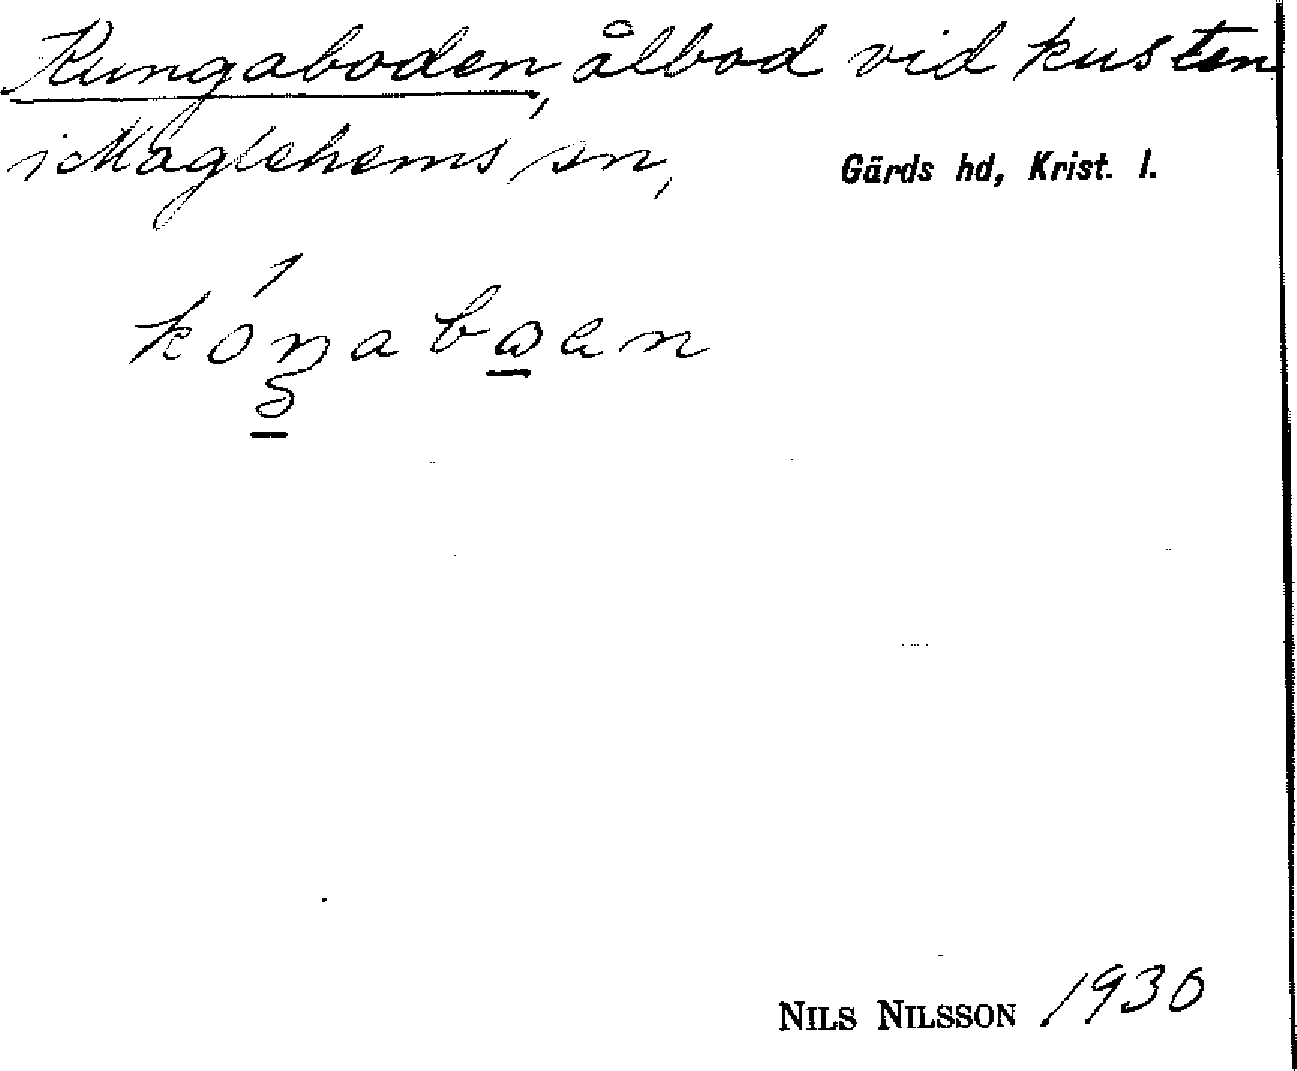 Kungaboden, ålbod vid kusten
i Maglehems sn, Gärds hd, Krist. l.
NILS NILSSON 1930